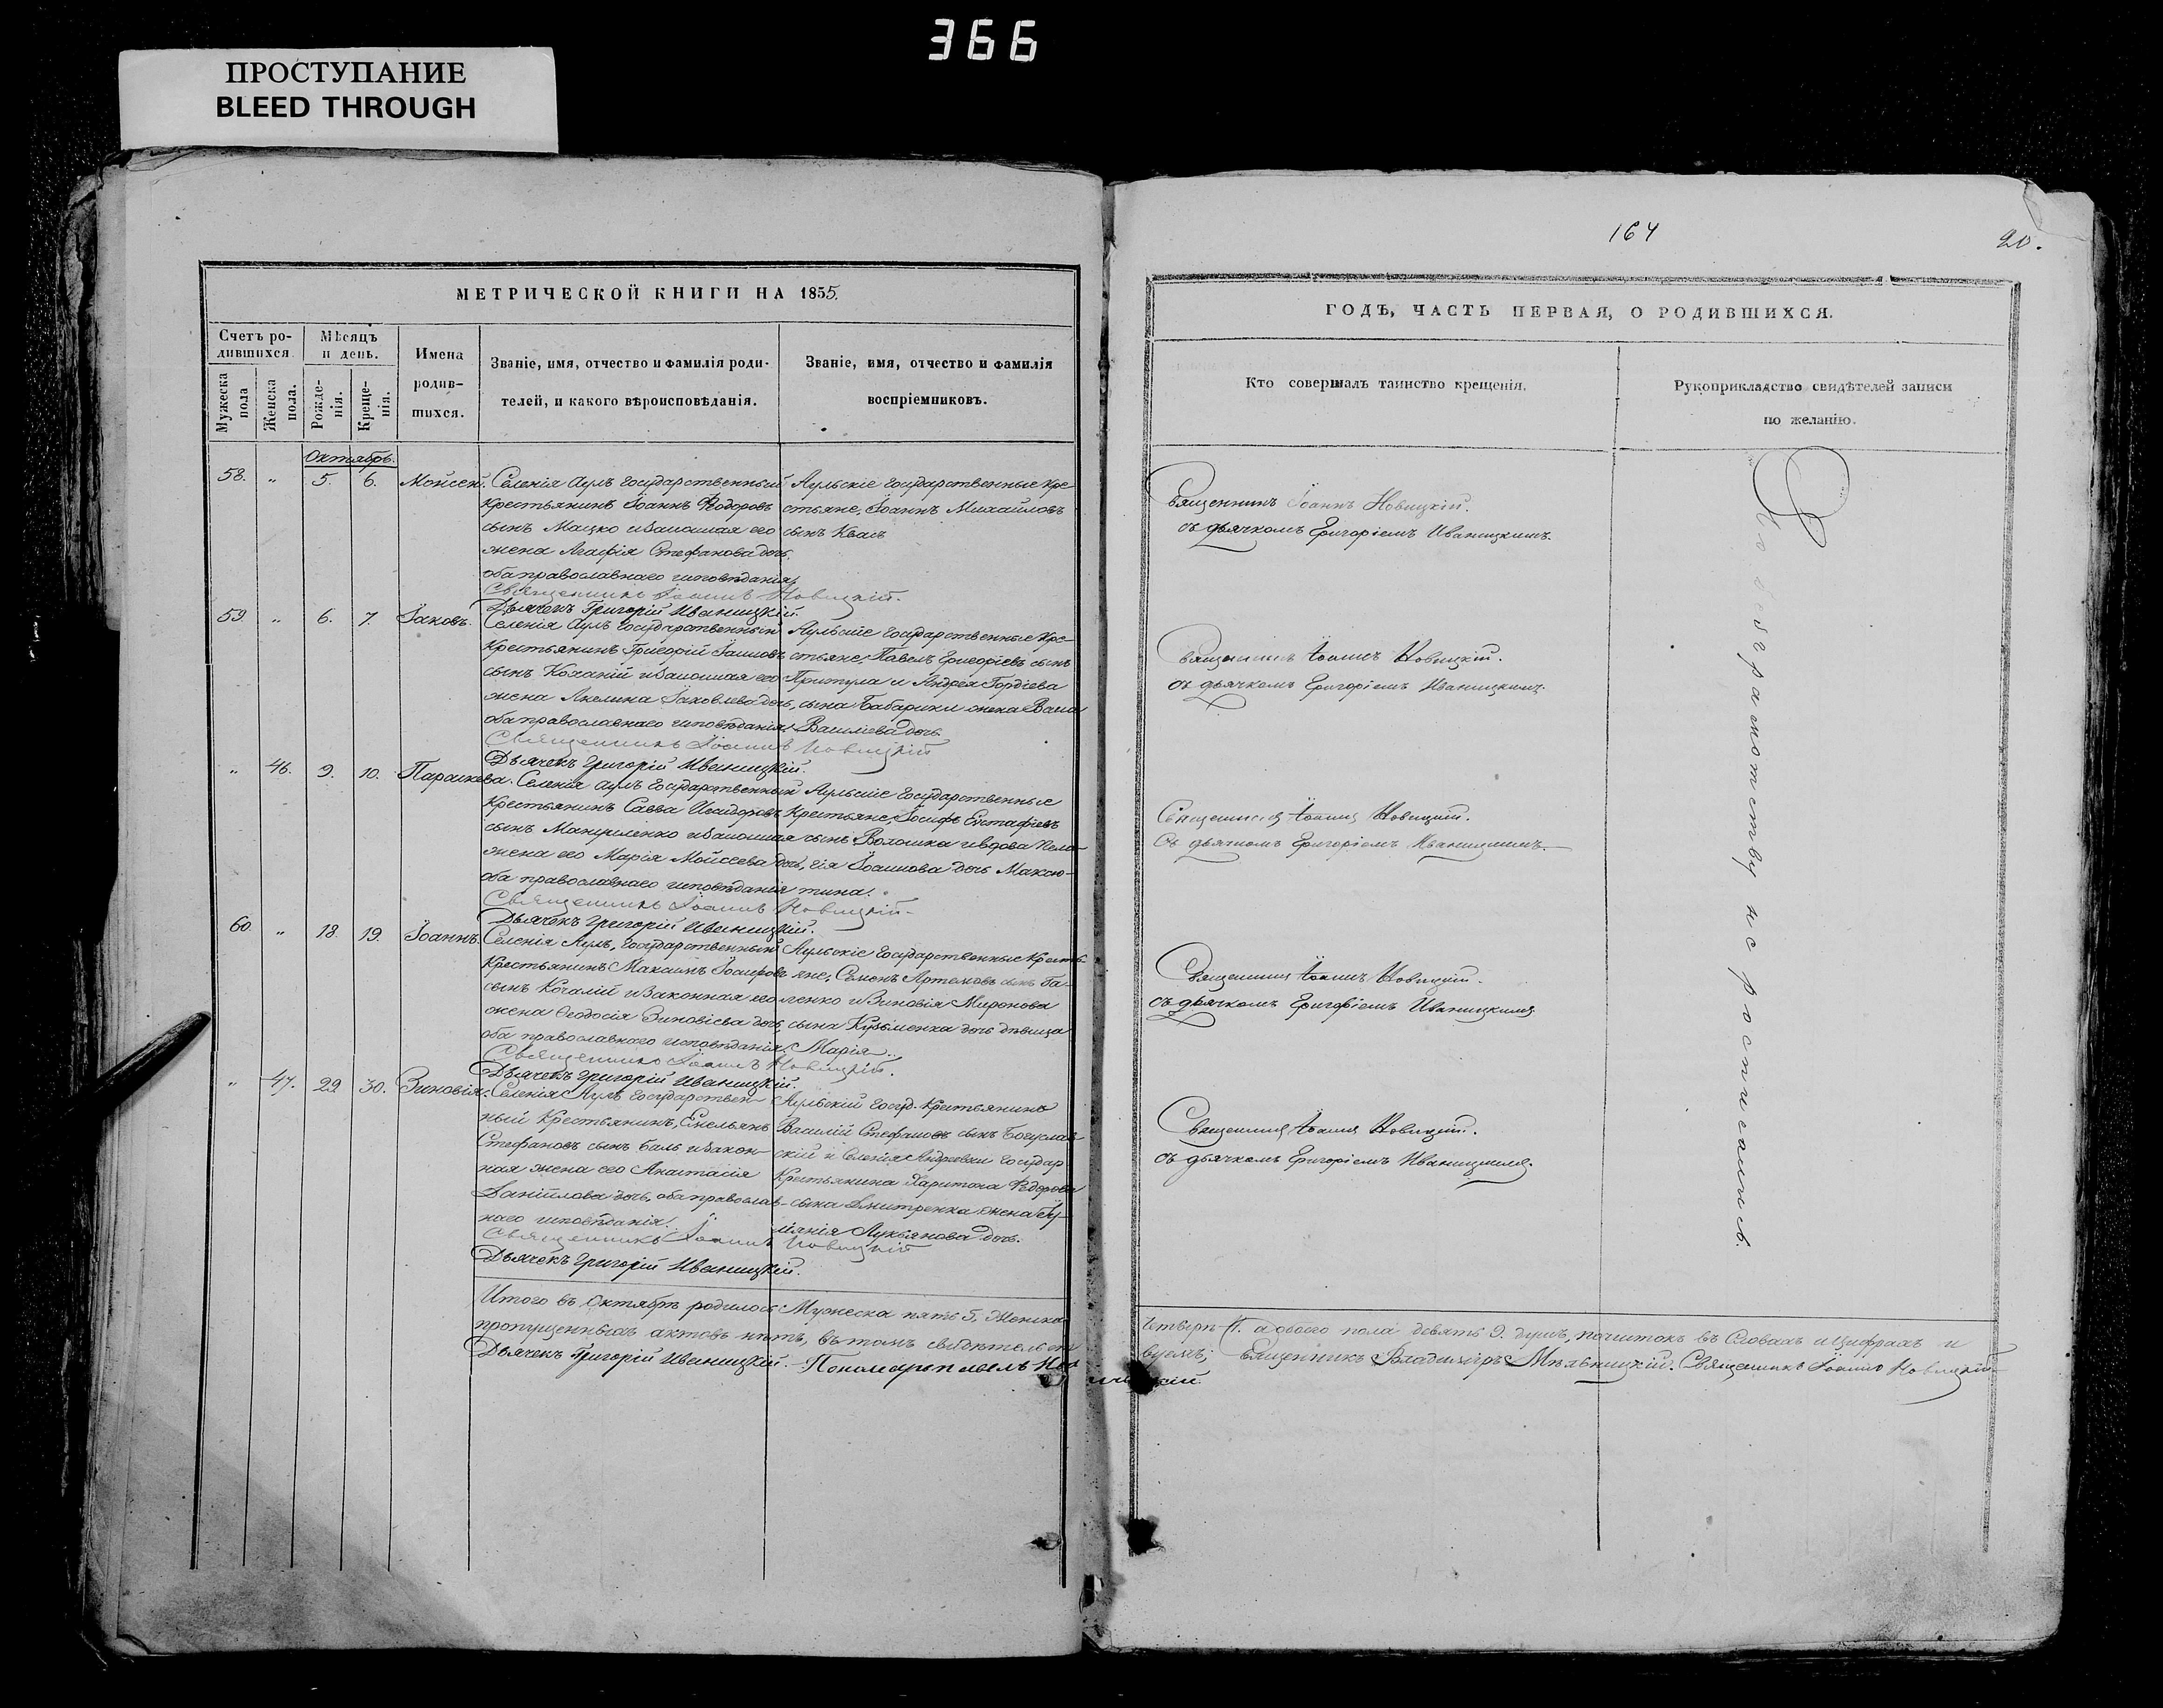 366
ПРОСТУПАНИЕ
BLEED THROUGH
МЕТРИЧЕСКОЙ КНИГИ НА 1855.
Счетъ ро-
дившихся.
Мѣсяцъ
и день.
Мужеска
пола
Женска
пола.
Рожде-
нія.
Креще-
нія.
Имена
родив-
шихся.
Званіе, имя, отчество и фамилія роди-
телей, и какого вѣроисповѣданія.
Званіе, имя, отчество и фамилія
воспріемниковъ.
Октябрь.
58. „ 5. 6. Мойсей.
Селенія Аулъ Государственный
Крестьянинъ Іоаннъ Ѳодоровъ
сынъ Мацко и законная его
жена Агафія Стефанова дочь
оба православнаго исповѣданія,
Священникъ Іоаннъ Новицкій.
Дьячекъ Григорій Иваницкій.
Аульскіе Государственные Кре-
стьяне, Іоаннъ Михайловъ
сынъ Квасъ
59 „ 6. 7. Іаковъ.
Селенія Аулъ Государственный
Крестьянинъ Григорій
сынъ Коханій и законная его
жена Акелина Іаковлева дочь,
оба православнаго исповѣданія.
Священникъ Іоаннъ Новицкій
Дьячекъ Григорій Иваницкій.
Аульскіе Государственные Кре-
стьяне, Павелъ Григоріевъ сынъ
Притула и Андрея Гордіева
сына Бабарики жена Васса
Василіева дочь
„ 46. 9. 10. Параскева.
Селенія Аулъ Государственный
Крестьянинъ Савва Исидоровъ
сынъ и законная
жена его Марія Мойсеева дочь,
оба православнаго исповѣданія
Священникъ Іоаннъ Новицкій
Дьячекъ Григорій Иваницкій.
Аульскіе Государственные
Крестьяне, Іосифъ Евстафіевъ
сынъ Волошка и вдова Пела-
гія Іоаннова дочь Макою-
тина.
60. „ 18. 19. Іоаннъ.
Селенія Аулъ, Государственный
Крестьянинъ Максимъ Іосифовъ
сынъ Кочалій и законная его
жена Ѳеодосія Зиновіева дочь
оба православнаго исповѣданія,
Священникъ Іоаннъ Новицкій.
Дьячекъ Григорій Иваницкій.
Аульскіе Государственные Кресть-
яне, Семенъ Артемовъ сынъ Га-
ленко и Зиновія Миронова
сына Кузьменка дочь дѣвица
Марія.
„ 47. 29 30. Зиновія.
Селенія Аулъ Государствен-
ный Крестьянинъ, Емельянъ
Стефановъ сынъ Баль и закон-
ная жена его Анастасія
Даніилова дочь, оба православ-
наго исповѣданія.
Священникъ Іоаннъ Новицкій
Дьячекъ Григорій Иваницкій.
Аульскій Госуд. Крестьянинъ
Василій Стефановъ сынъ Богуслав-
скій и Селенія Андреевки Государ
Крестьянина Харитона Ѳедорова
сына Дмитренка жена Іу-
ліянія Лукьянова дочь.
Итого въ Октябрѣ родилось Мужеска пять 5, Женска
пропущенныхъ актовъ нѣтъ, въ томъ свидѣтельст
Дьячекъ Григорій Иваницкій. Пономарь Павелъ
164
20.
ГОДЪ, ЧАСТЬ ПЕРВАЯ, О РОДИВШИХСЯ.
Кто совершалъ таинство крещенія.
Рукоприкладство свидѣтелей записи
по желанію.
Священникъ Іоаннъ Новицкій.
съ дьячкомъ Григоріемъ Иваницкимъ.
Священникъ Іоаннъ Новицкій.
съ дьячкомъ Григоріемъ Иваницкимъ.
Священникъ Іоаннъ Новицкій.
Съ дьячкомъ Григоріемъ Иваницкимъ.
Священникъ Іоаннъ Новицкій.
съ дьячкомъ Григоріемъ Иваницкимъ
Священникъ Іоаннъ Новицкій.
съ дьячкомъ Григоріемъ Иваницкимъ.
По безграмотству не росписались.
четыре 4. а обоего пола девять 9. душъ, почистокъ въ Словахъ и Цифрахъ и
вуемъ; Священникъ Владиміръ Мѣльницкій. Священникъ Іоаннъ Новицкій